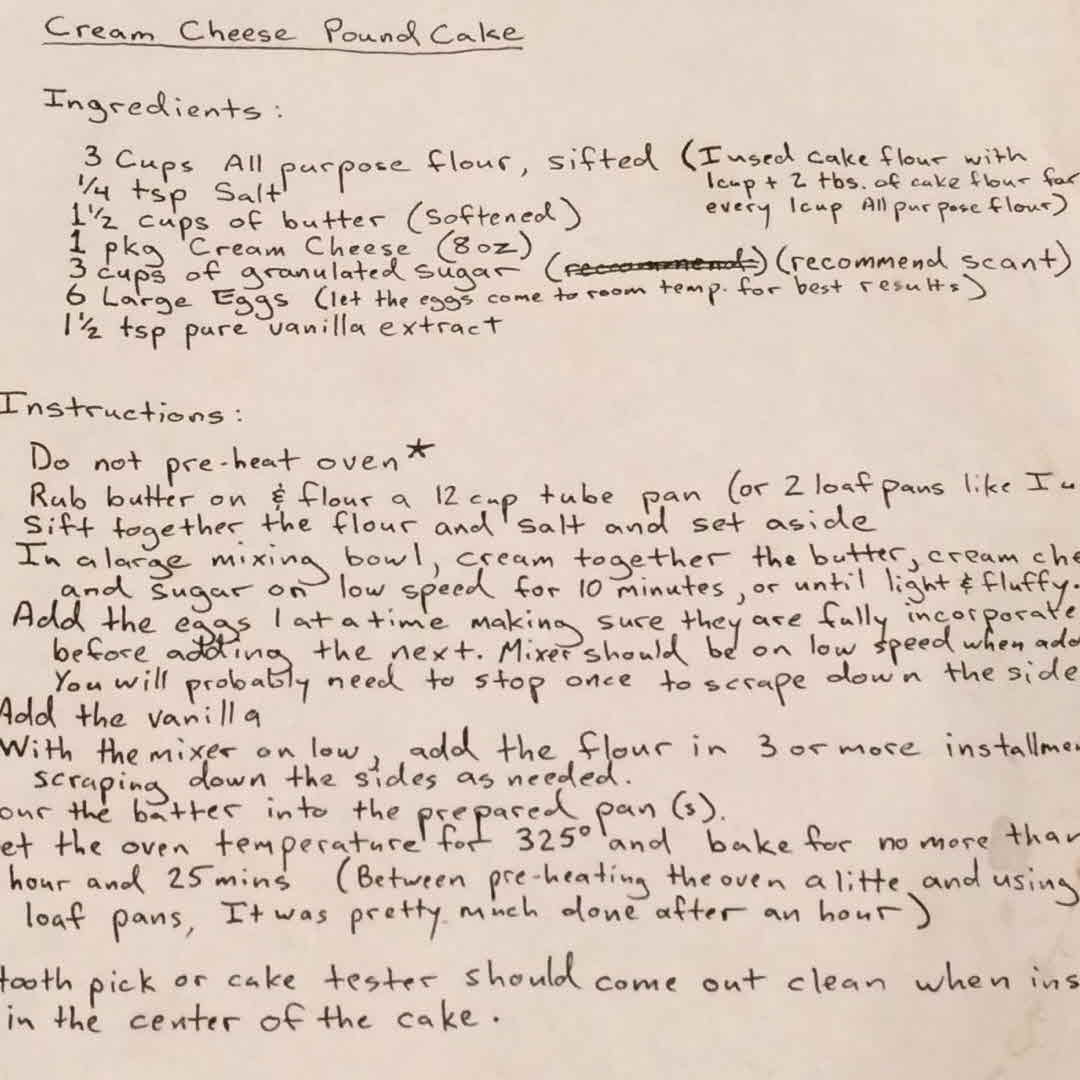 Cream Cheese Pound Cake
Ingredients:
3 Cups All purpose flour, sifted (I used cake flour with
1cup + 2 tbs. of cake flour for
every 1cup All purpose flour)
1/4 tsp Salt
1 1/2 cups of butter (Softened)
1 pkg Cream Cheese (8oz)
3 cups of granulated sugar (recommend) (recommend scant)
6 Large Eggs (let the eggs come to room temp. for best results)
1 1/2 tsp pure vanilla extract
Instructions:
Do not pre-heat oven*
Rub butter on & flour a 12 cup tube pan (or 2 loaf pans like I u
Sift together the flour and salt and set aside
In a large mixing bowl, cream together the butter, cream che
and sugar on low speed for 10 minutes, or until light & fluffy.
Add the eggs 1 at a time making sure they are fully incorporate
before adding the next. Mixer should be on low speed when add
You will probably need to stop once to scrape down the side
Add the vanilla
With the mixer on low, add the flour in 3 or more installmen
scraping down the sides as needed.
our the batter into the prepared pan (s).
et the oven temperature for 325° and bake for no more than
hour and 25 mins (Between pre-heating the oven a litte and using
loaf pans, It was pretty much done after an hour)
tooth pick or cake tester should come out clean when ins
in the center of the cake.